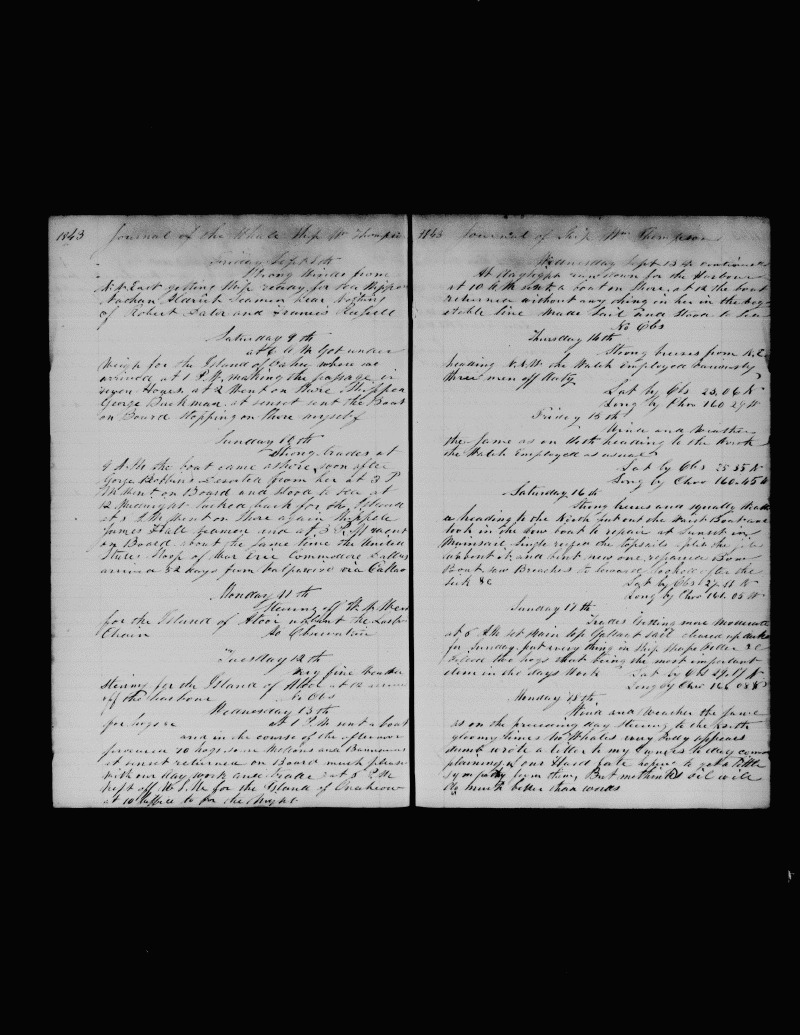 1843 Journal of the Whale Ship Wm Thompson
Friday Sept 8th
Strong Winds from
N.N. East getting Ship ready for Sea Shipped
Nathan Aldrich Seaman hear nothing
of Robert and Francis Russell
Saturday 9th
at 6 A M Got under
Weigh for the Island of Oahu where we
arrived at 1 P.M. making the passage in
seven Hours at 2 Went on Shore Shipped
George Buckman at sunset sent the Boat
on Board Stopping on Shore myself
Sunday 10th
Strong trades at
9 A.M. the boat came ashore soon after
Gorge Robbins Deserted from her at 3 P
M Went on Board and stood to sea at
12 Midnight tacked back for the Island
at 8 A.M. Went on Shore again Shipped
James Hale Seaman and at 3 P.M. went
on Board about the same time the United
States Sloop of War Erie Commodore Dallas
arrived 52 days from Valparaiso via Callao
Monday 11th
Steering off W.N. West
for the Island of Atoi
Chain No Chronoter
Tuesday 12th
very fine Weather
steering for the Island of Atoi at 12 arrived
off the harbour No Obs
Wednesday 13th
at 1 P.M. sent a boat
and in the course of the afternoon
procured 10 hogs some Melons and Bannanas
at sunset returned on Board much pleased
with our day work and trade at 5 P.M.
kept off W.S.W. for the Island of Oneheow
at 10 to for the Night
1843 Journal of Ship Wm Thompson
Wednesday Sept 13 continued
At daylight ran down for the Harbour
at 10 A.M. sent a boat on Shore, at 12 the boat
returned without any thing in her in the vege
etable line Made Sail and Stood to Sea
No Obs
Thursday 14th
Strong breeses from N.E.
heading N.N.W. the Watch Employed variously
three men off duty
Lat by Obs 23.06 N
Long by Chro 160.29 W
Friday 15th
Wind and Weather
the same as on 14th heading to the North
the Watch Employed as usual
Lat by Obs 25 35 N
Long by Chro 160.45 W
Saturday 16th
Strong breeses and squally Weather
heading to the North put out the Waist Boat and
took in the Bow boat to repair at Sunset in
Mainsail Single reefed the topsails split the jib
unbent it and bent new one, repaired Bow
Boat, saw Breaches to leeward, looked after the
sick &c Lat by Obs 27.11 N
Long by Chro 161.05 W
Sunday 17th
Trades Getting more Moderate
at 5 A.M. set Main top Gallant Sail cleared up decks
for Sunday, put every thing in Ship Shape order &c
Killed two hogs that being the most important
item in the days Work Lat by Obs 29.17 N
Long by Chro
Monday 18th
Wind and Weather the same
as on the preceeding day steering to the North
gloomy times No Whales every Body appears
dumb wrote a letter to my Owners to day com
plaining of our Hard fate hopeing to get a little
sympathy from them, But methinks oil will
do much better than words